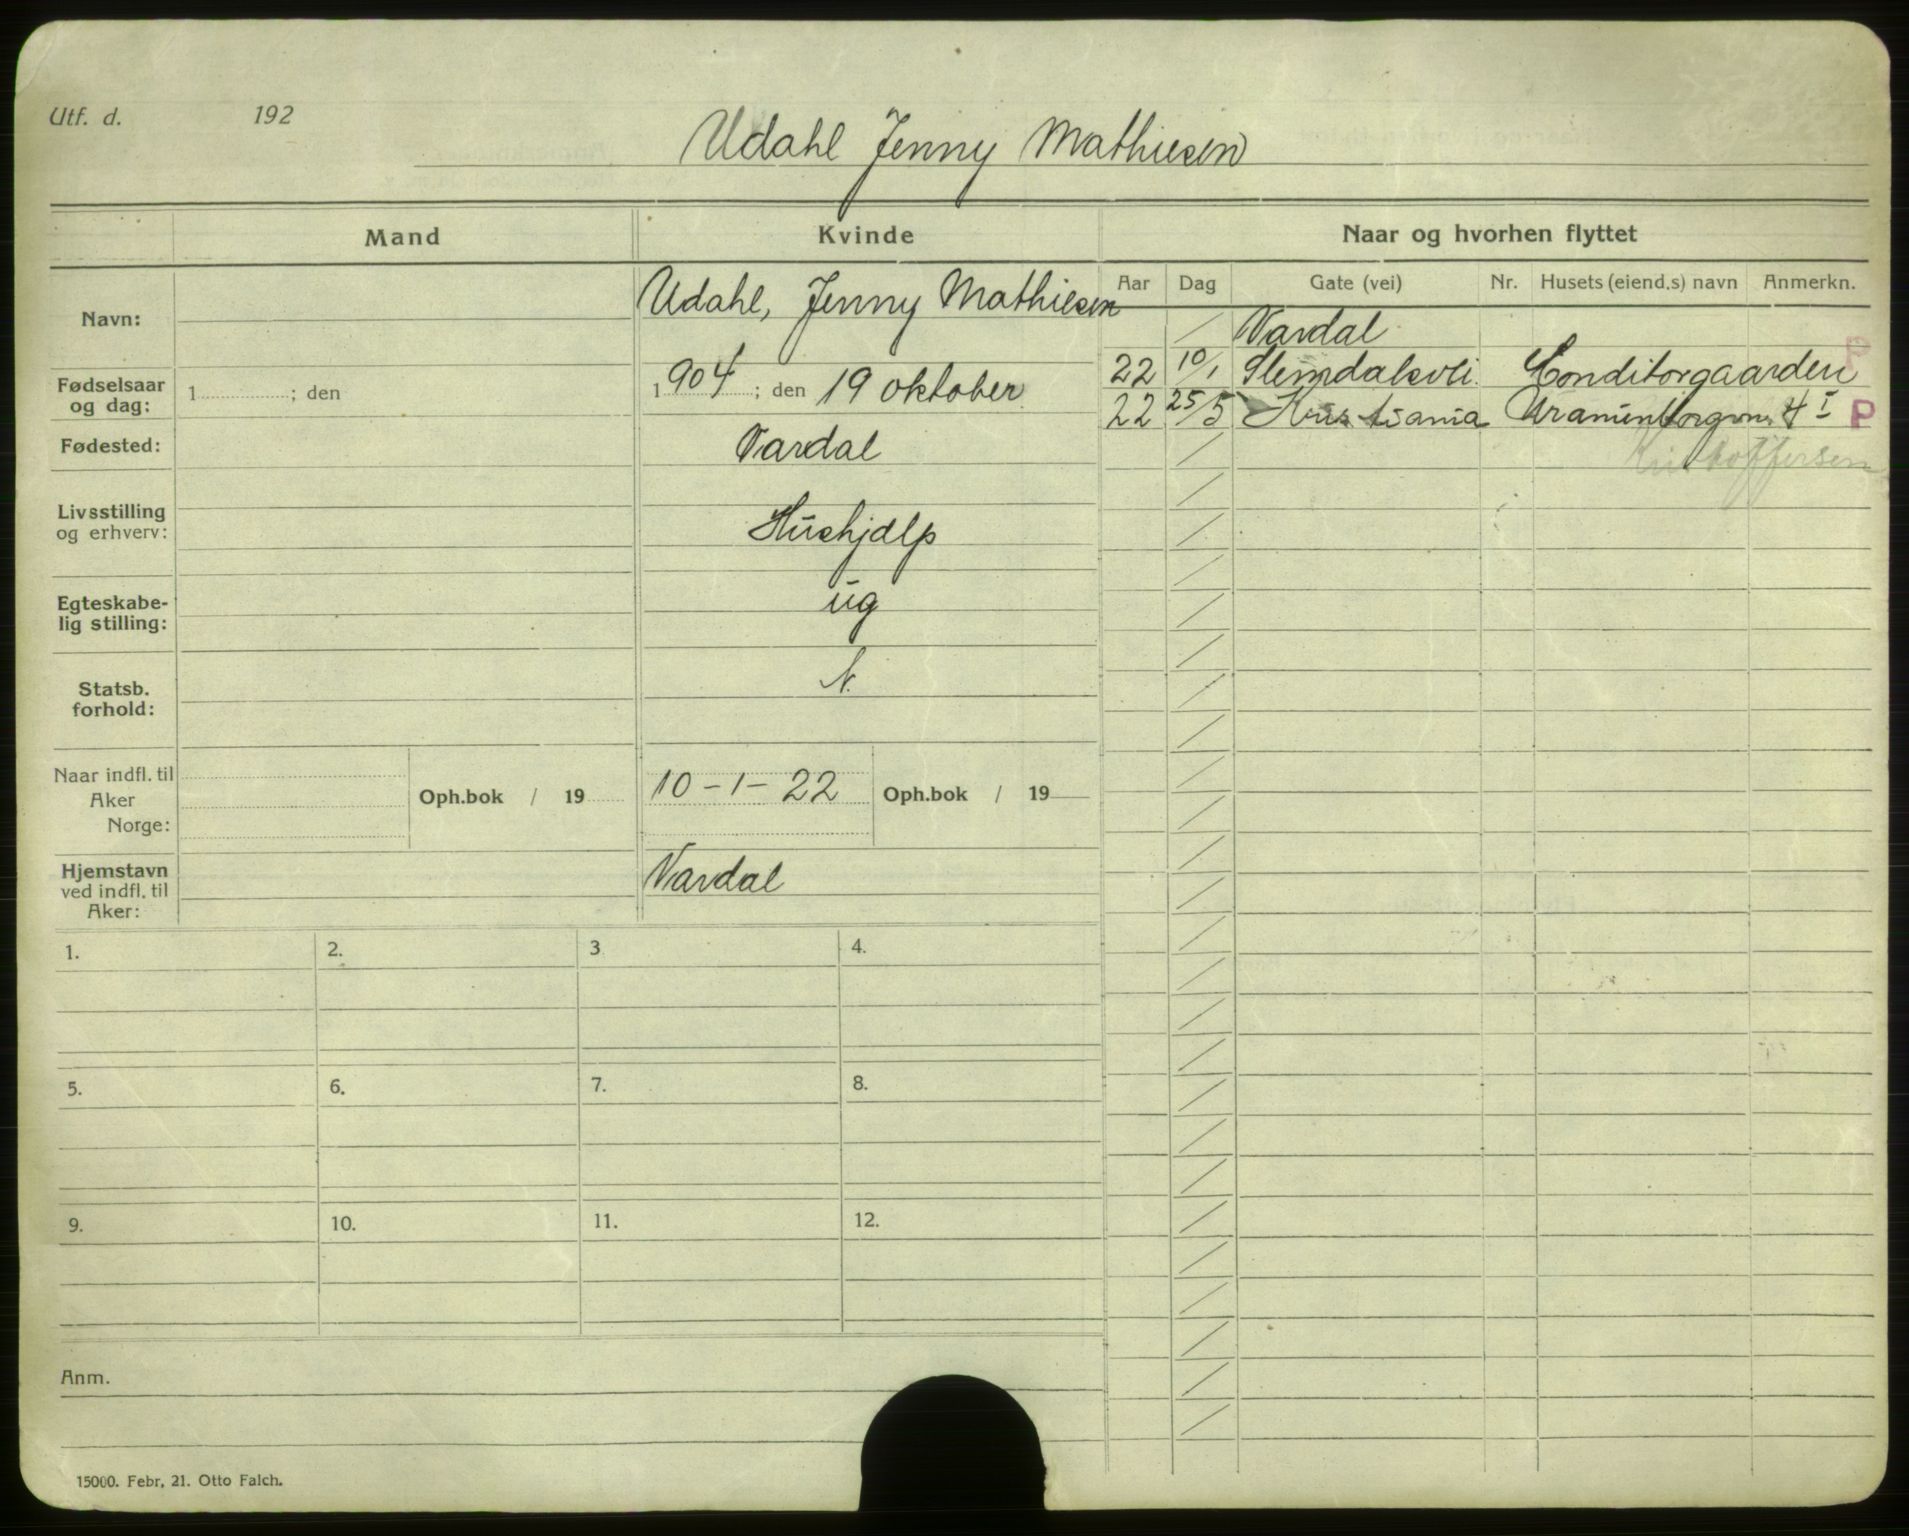 Utf. d. 192
Udahl Jenny Mathiesen
Mand Kvinde Naar og hvorhen flyttet
Aar Dag Gate (vei) Nr. Husets (eiend.s) navn Anmerkn.
Navn: Udahl, Jenny Mathiesen
/ Vardal
P
22 10/1 Slemdalsvei. Conditorgaarden
Fødselsaar og dag: 1 ; den 1904 ; den 19 oktober
22 25/5 Kristiania Uranienborgvn. 4 I P
Kristoffersen
Fødested: Vardal
Livsstilling og erhverv: Hushjælp
Egteskabe-
lig stilling: ug
Statsb.
forhold: N.
Naar indfl. til
Aker
Norge:
Oph.bok / 19 10-1-22 Oph.bok / 19
Hjemstavn
ved indfl. til
Aker: Vardal
1. 2. 3 4.
5. 6. 7. 8.
9. 10. 11. 12.
Anm.
15000. Febr, 21. Otto Falch.